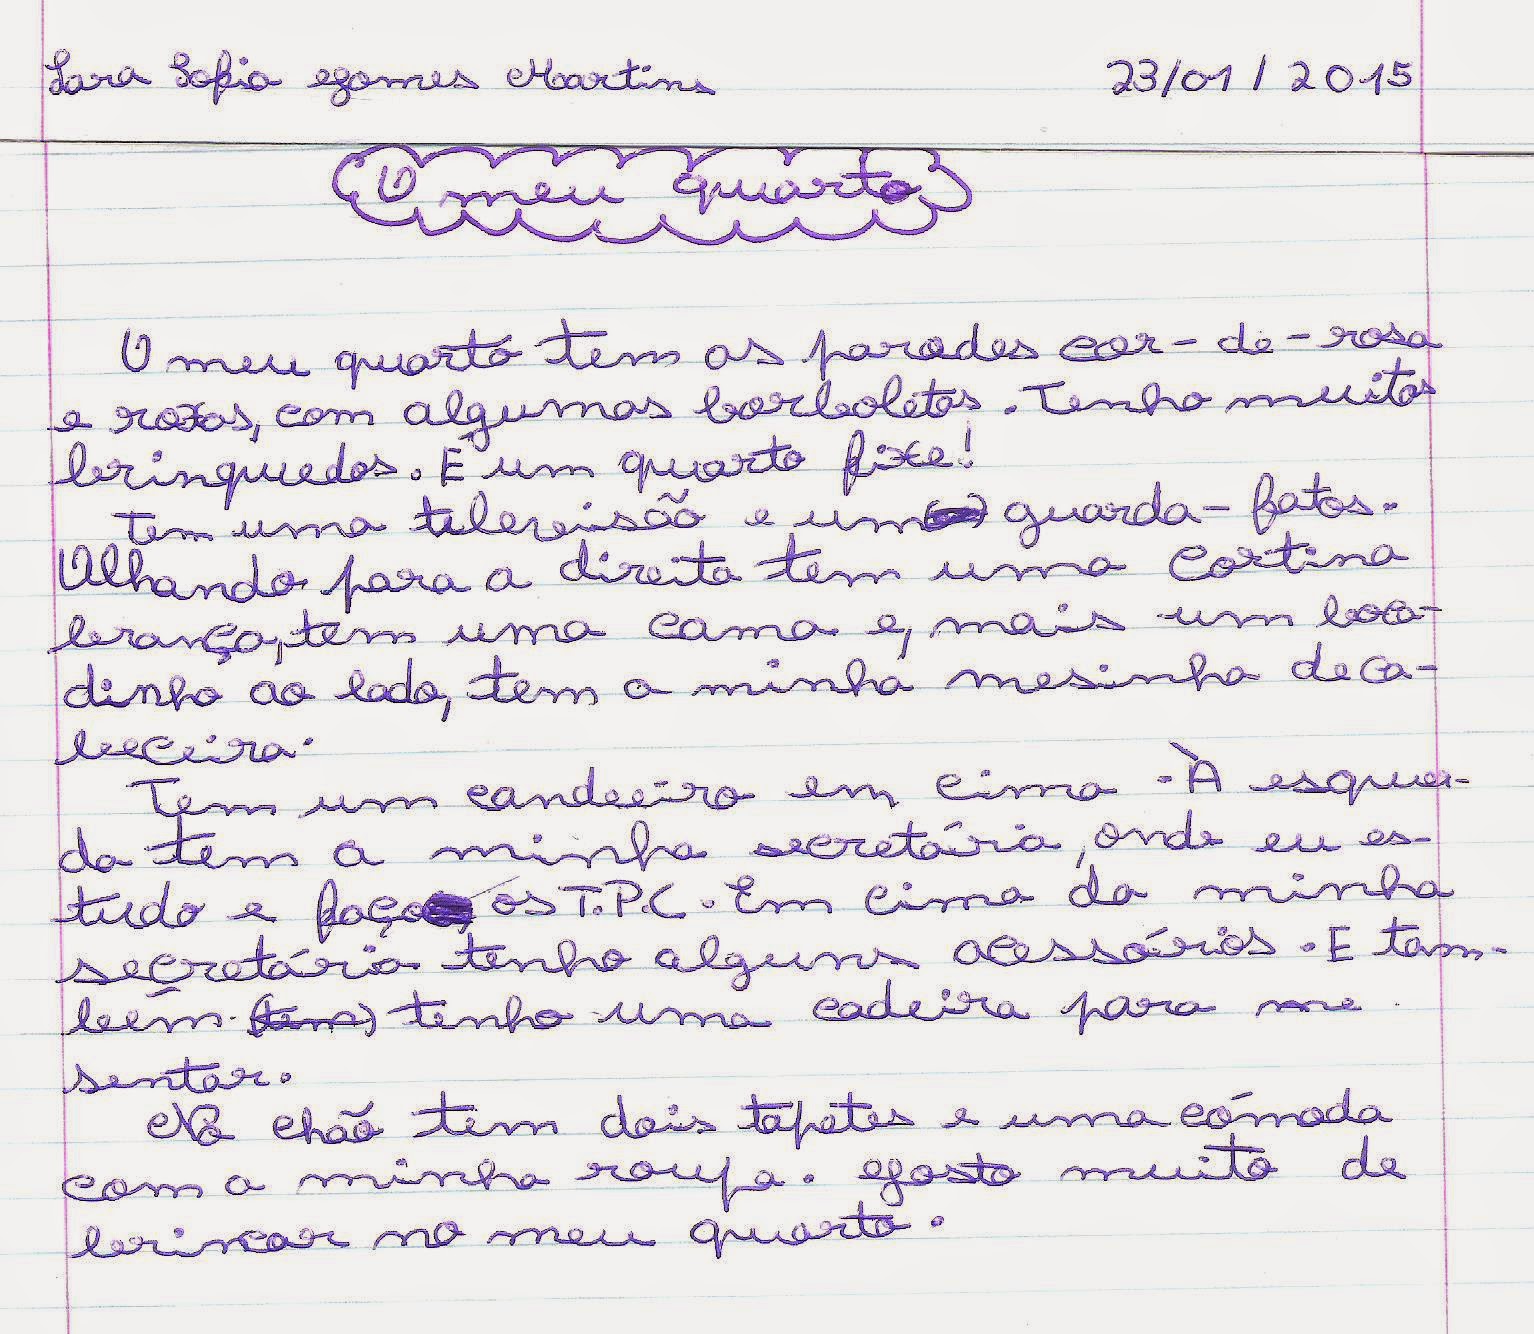 Lara Sofia Gomes Martins 23/01/2015
O meu quarto
O meu quarto tem as paredes cor-de-rosa
e roxas, com algumas borboletas. Tenho muitos
brinquedos. É um quarto fixe!
Tem uma televisão e um guarda-fatos.
Olhando para a direita tem uma cortina
branca, tem uma cama e, mais um boca-
dinho ao lado, tem a minha mesinha de ca-
beceira.
Tem um candeeiro em cima. À esquer-
da tem a minha secretária, onde eu es-
tudo e faço os T.P.C. Em cima da minha
secretária tenho alguns acessórios. E tam-
bém (tem) tenho uma cadeira para me
sentar.
No chão tem dois tapetes e uma cómoda
com a minha roupa. Gosto muito de
brincar no meu quarto.